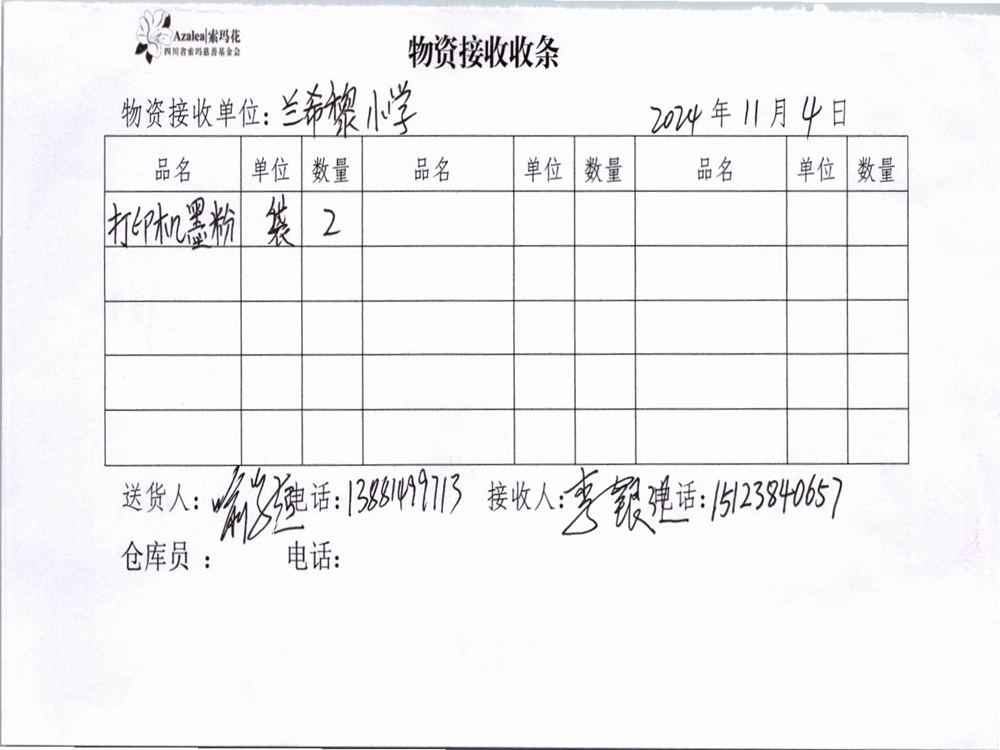 Azalea|索玛花
四川省索玛慈善基金会
物资接收收条
物资接收单位：兰希黎小学 2024年11月4日
品名 单位 数量 品名 单位 数量 品名 单位 数量
打印机墨粉 袋 2
送货人： 电话：13881499713 接收人：李 强 电话：15123840657
仓库员： 电话：